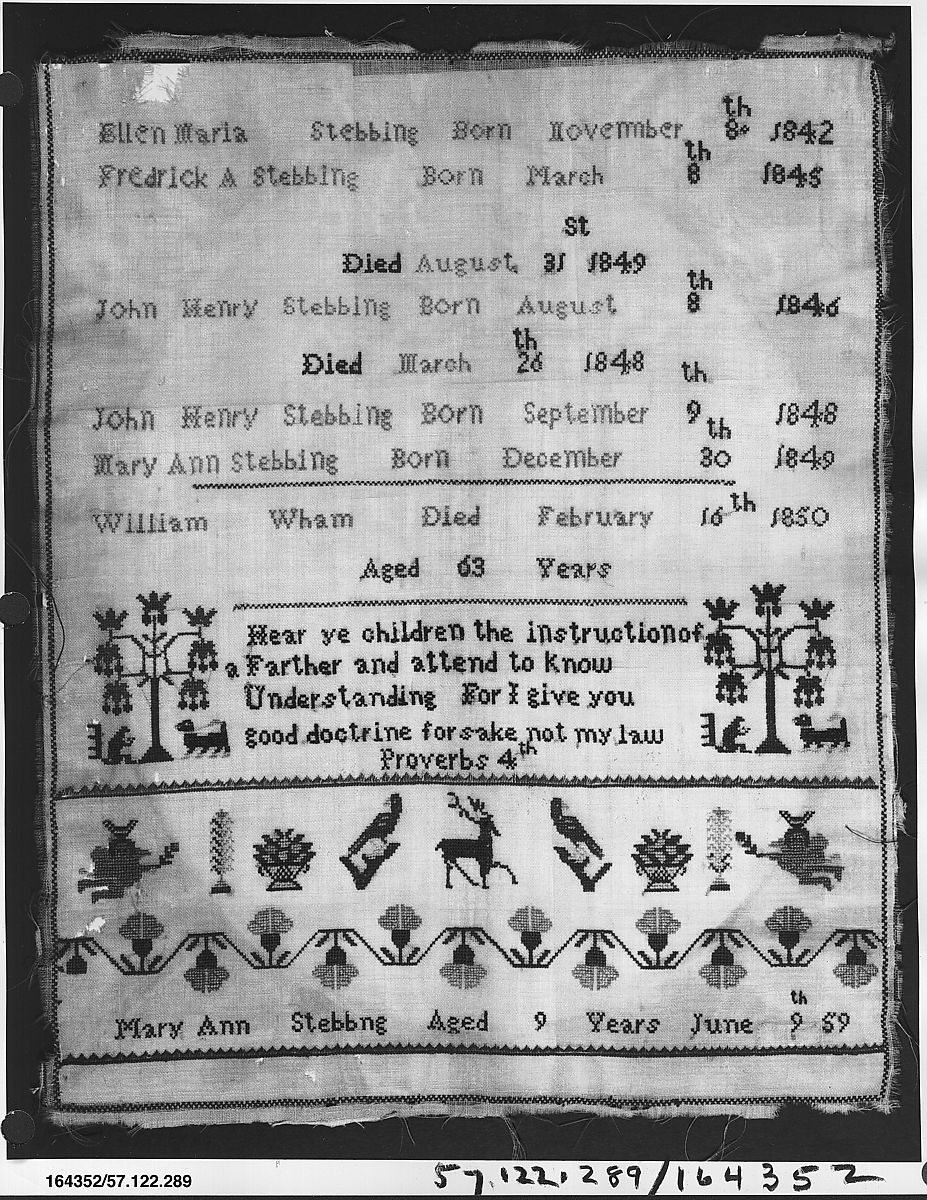 Ellen Maria Stebbing Born November 8th 1842
Fredrick A Stebbing Born March 8th 1845
Died August 31St 1849
John Henry Stebbing Born August 8th 1846
Died March 26th 1848
John Henry Stebbing Born September 9th 1848
Mary Ann Stebbing Born December 30th 1849
William Wham Died February 16th 1850
Aged 63 Years
Hear ye children the instruction of
a Farther and attend to know
Understanding For I give you
good doctrine forsake not my law
Proverbs 4th
Mary Ann Stebbng Aged 9 Years June 9th 59
164352/57.122.289
57.122.289/164352